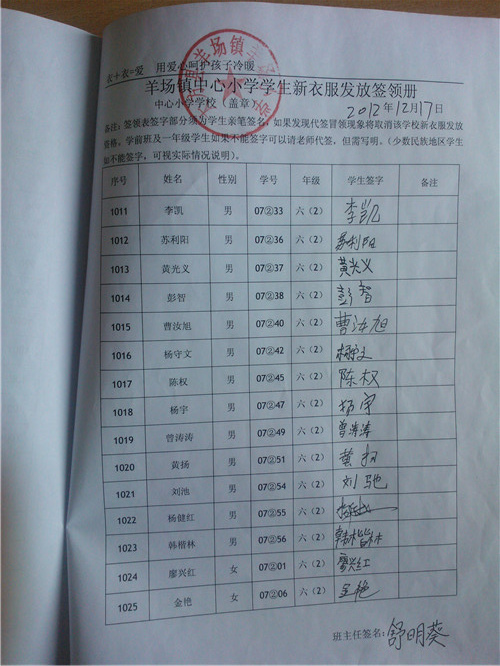 衣+衣=爱 用爱心呵护孩子冷暖
羊场镇中心小学学生新衣服发放签领册
中心小学学校（盖章） 2012年12月17日
备注：签领表签字部分须为学生亲笔签名，如果发现代签冒领现象将取消该学校新衣服发放
资格。学前班及一年级学生如果不能签字可以请老师代签，但需写明。（少数民族地区学生
如不能签字，可视实际情况说明）。
序号 姓名 性别 学号 年级 学生签字 备注
1011 李凯 男 07②33 六（2） 李凯
1012 苏利阳 男 07②36 六（2） 苏利阳
1013 黄光义 男 07②37 六（2） 黄光义
1014 彭智 男 07②38 六（2） 彭智
1015 曹汝旭 男 07②40 六（2） 曹汝旭
1016 杨守文 男 07②42 六（2） 杨守文
1017 陈权 男 07②45 六（2） 陈权
1018 杨宇 男 07②47 六（2） 杨宇
1019 曾涛涛 男 07②49 六（2） 曾涛涛
1020 黄扬 男 07②51 六（2） 黄扬
1021 刘池 男 07②54 六（2） 刘驰
1022 杨健红 男 07②55 六（2）
1023 韩楷林 男 07②56 六（2） 韩楷林
1024 廖兴红 女 07②01 六（2） 廖兴红
1025 金艳 女 07②06 六（2） 金艳
班主任签名：舒明葵